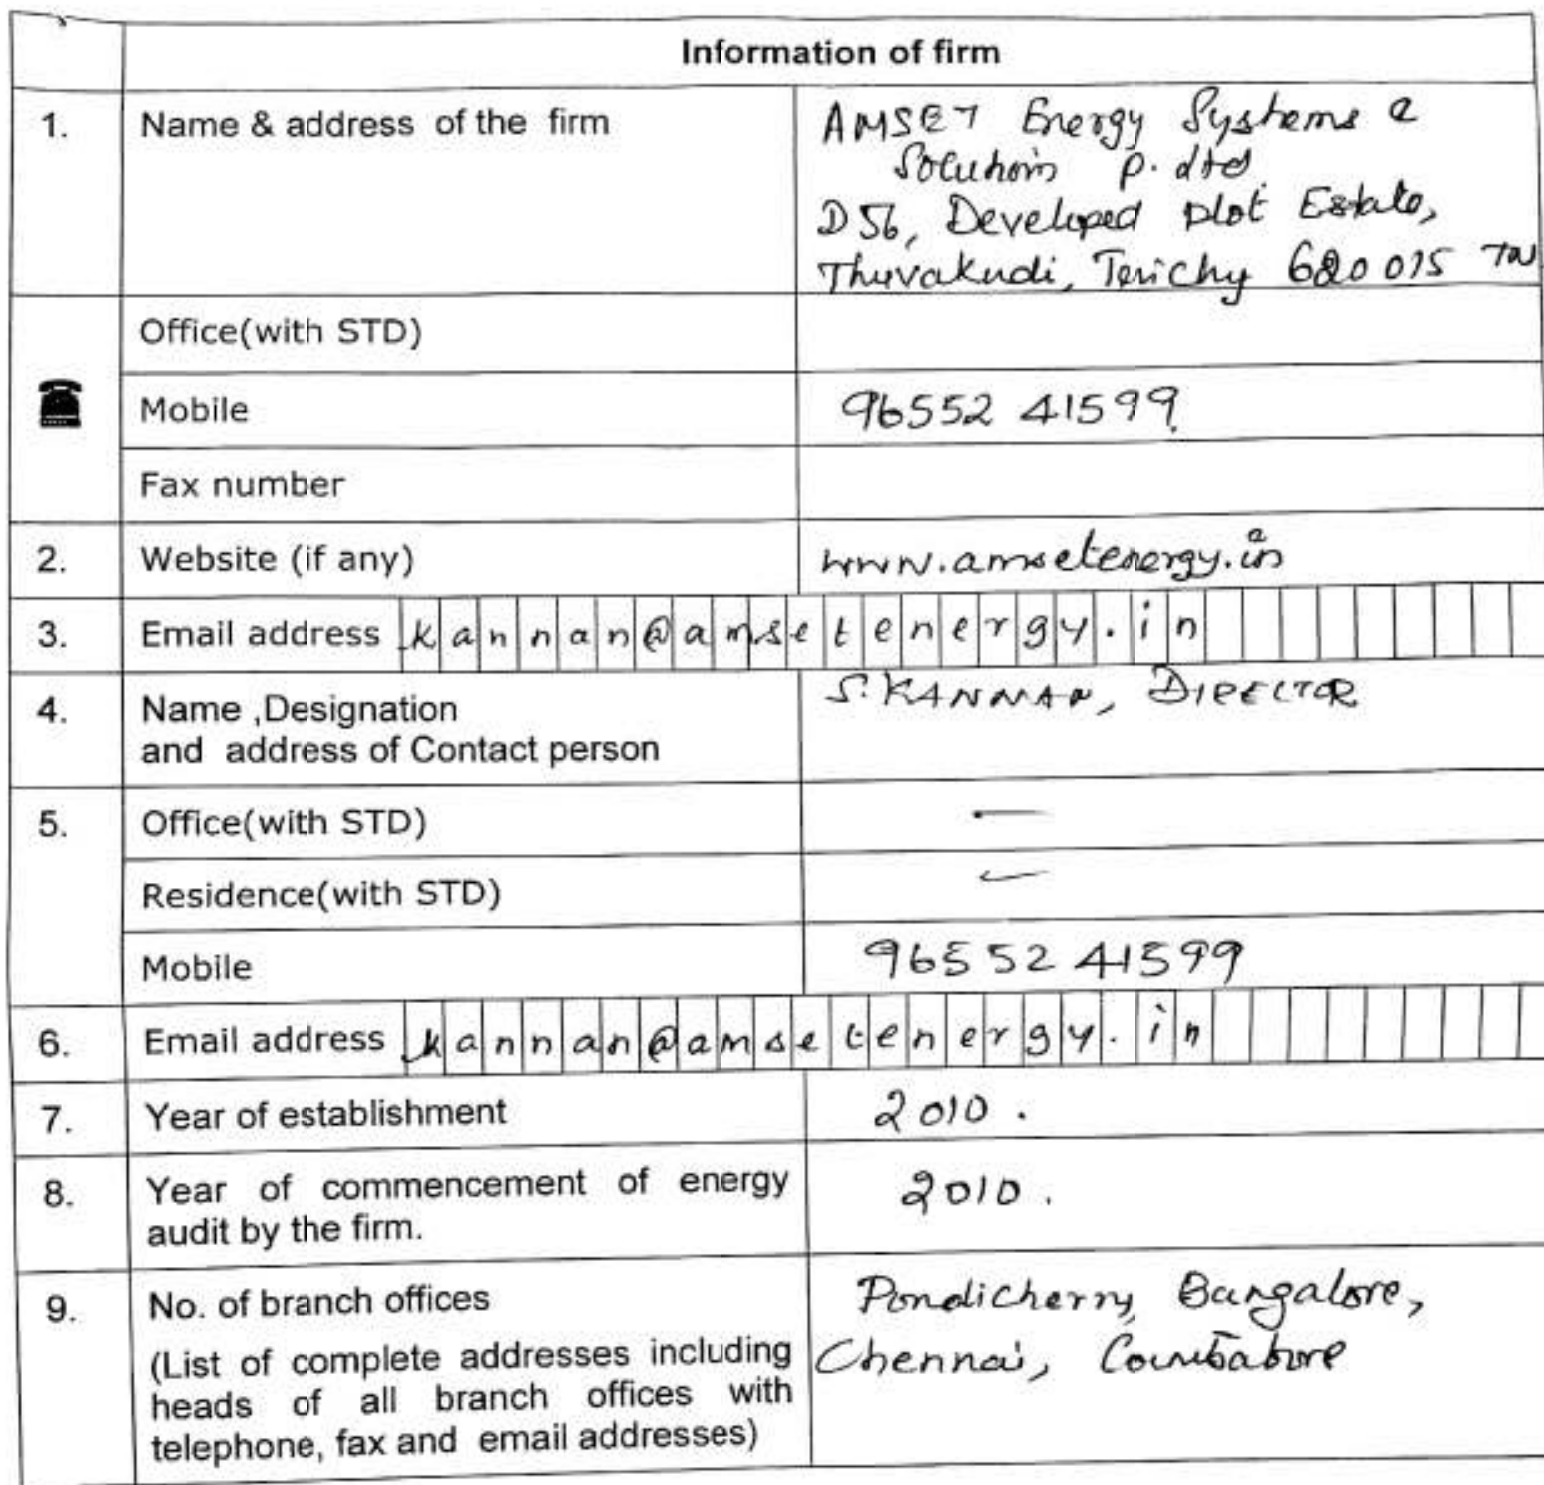 Information of firm
1. Name & address of the firm
AMSET Energy Systems &
Solutions P. Ltd
D56, Developed Plot Estate,
Thuvakudi, Terichy 620 015 TN
Office(with STD)
Mobile 96552 41599
Fax number
2. Website (if any) www.amsetenergy.in
3. Email address kannan@amsetenergy.in
4. Name ,Designation
and address of Contact person
S. KANNAN, DIRECTOR
5. Office(with STD) —
Residence(with STD) —
Mobile 96552 41599
6. Email address kannan@amsetenergy.in
7. Year of establishment 2010.
8. Year of commencement of energy
audit by the firm.
2010.
9. No. of branch offices
(List of complete addresses including
heads of all branch offices with
telephone, fax and email addresses)
Pondicherry, Bangalore,
Chennai, Coimbatore